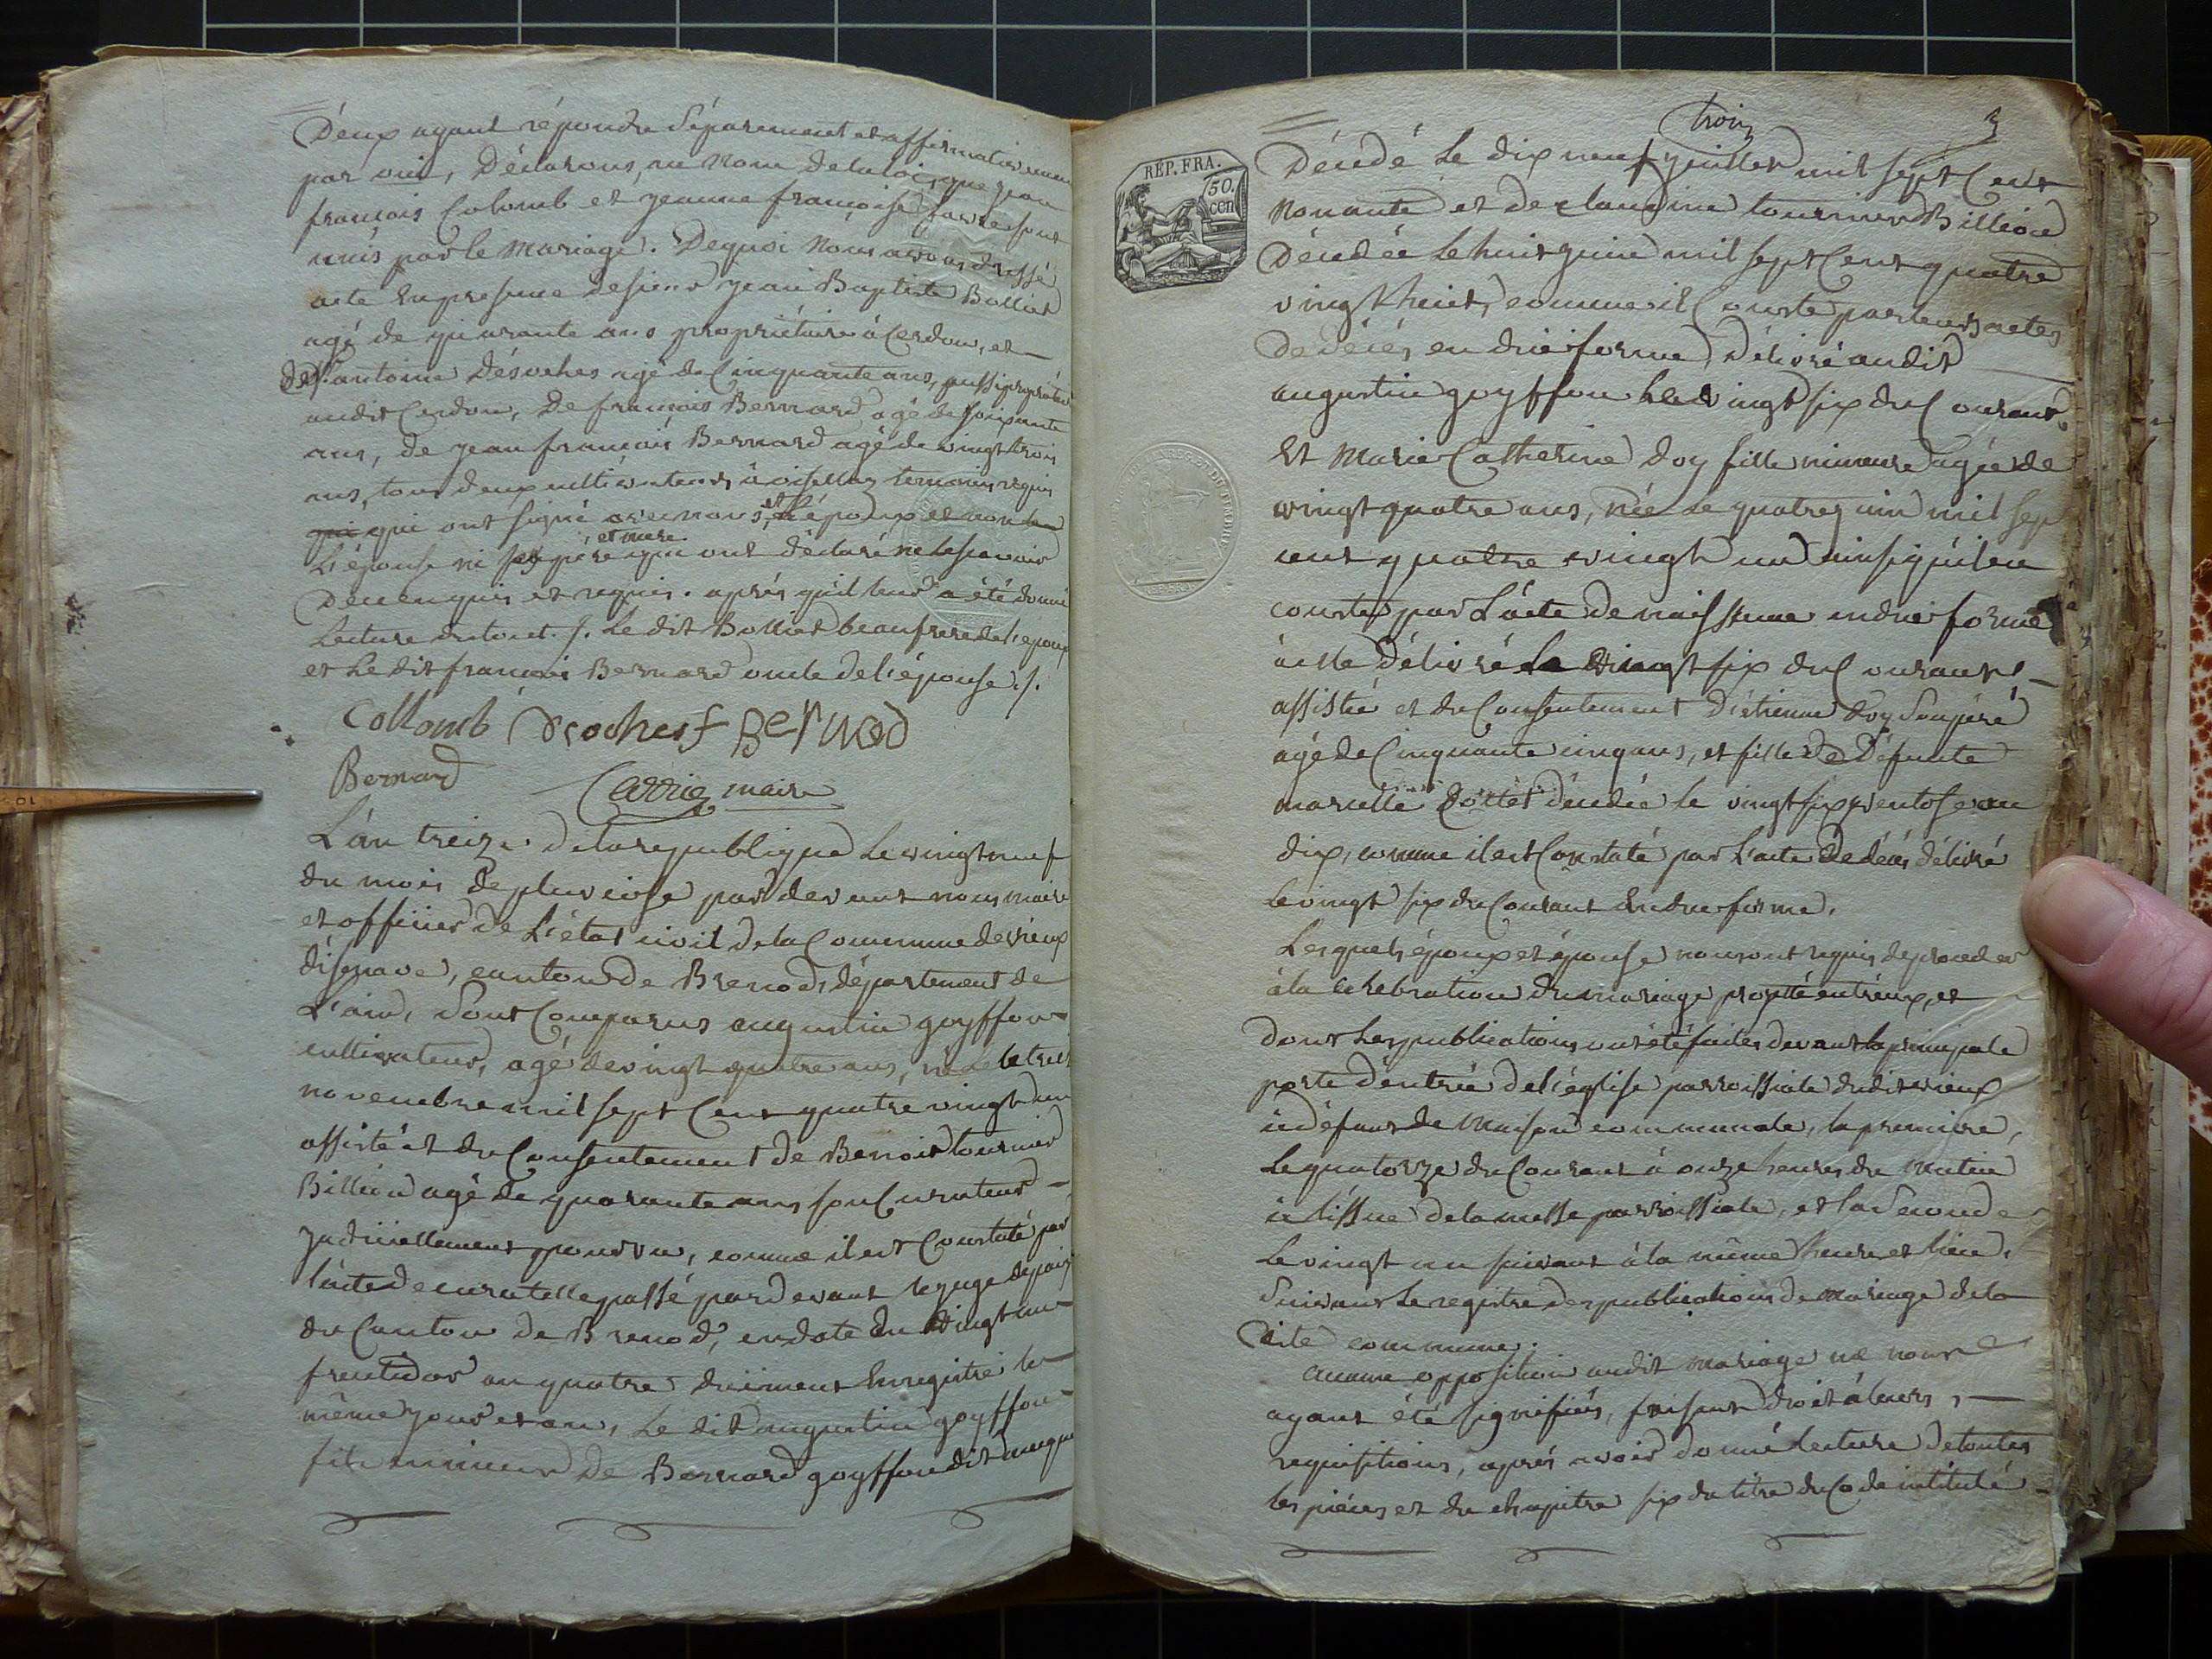 D'eux ayant répondu séparément et affirmativement
par oui, Déclarons, au nom de la loi, que jean
françois Colomb et jeanne françoise favre sont
unis par le mariage. De quoi nous avons dressé
acte En presence de sieur jean Baptiste Bolliet
agé de quarante ans propriétaire à Cerdon, et
de Sr antoine Désroches agé de Cinquante ans, aussi propriétaire
audit Cerdon, De françois Bernard agé de soixante
ans, de jean françois Bernard agé de vingt trois
ans, tous deux cultivateurs à oisellaz temoins requis
qui qui ont signé avec nous, et L'époux et non
L'épouse ni ses père et mere qui ont déclaré ne le scavoir
De ce enquis et requis. après qu'il leur a été donné
Lecture du tout. /. Le dit Bolliet beaufrere de l'époux
et Le dit françois Bernard oncle de l'épouse ./.
Collomb Derochesf Bernad
Bernard
Carrier maire
L'an treize de la republique Le vingt neuf
du mois de pluviose par devant nous maire
et officier de L'état civil de la Commune de vieux
d'isenave, canton de Brenod, département de
L'ain, sont Comparus augustin goyffon
cultivateur, agé de vingt quatre ans, né le treize
novembre mil sept Cent quatre vingt un
assisté et du Consentement de Benoit tournier
Billion agé de quarante ans son Curateur
judiciellement pourvu, comme il est Constaté par
l'acte de curatelle passé pardevant le juge de paix
du Canton de Brenod, en date du vingt un
fructidor an quatre duement Enregistré le
même jour et an, Le dit augustin goyffon
fils mineur de Bernard goyffon dit
trois 3
RÉP. FRA.
50.
cen
Décédé Le dix neuf juillet mil sept Cent
nonante et de claudine tournier Billion
Décédée Le huit juin mil sept Cent quatre
vingt huit, comme il Conste par leurs actes
de décés en due forme, Délivré audit
augustin goyffon Le vingt six du Courant.
Et Marie Catherine doy fille mineure agée de
vingt quatre ans, née Le quatre juin mil sep
cent quatre vingt un ainsi qu'il en
conste par L'acte de naissance en due forme
à elle Délivré Le vingt six du Courant
assistée et du Consentement d'étienne doy Son père
agé de Cinquante cinq ans, et fille de Défunte
décédée le vingt six ventose an
dix, comme il est Constaté par L'acte de décés délivré
Le vingt six du Courant En due forme.
Lesquels époux et épouse nous ont requis de proceder
à la célébration du mariage projetté entr'eux, et
dont Les publications ont été faites devant la principale
porte d'entrée de l'église parroissiale dudit vieux
à défaut de maison communale, la premiere,
Le quatorze du Courant à onze heures du matin
à L'issue de la messe parroissiale, et la Seconde
Le vingt un suivant à la même heure et lieu,
Suivant Le registre des publications de mariage de la
dite commune.
aucune opposition audit mariage ne nous
ayant été signifiés, faisant droit à leurs
requisitions, après avoir donné lecture de toutes
les piéces et du chapitre six du titre du Code intitulé